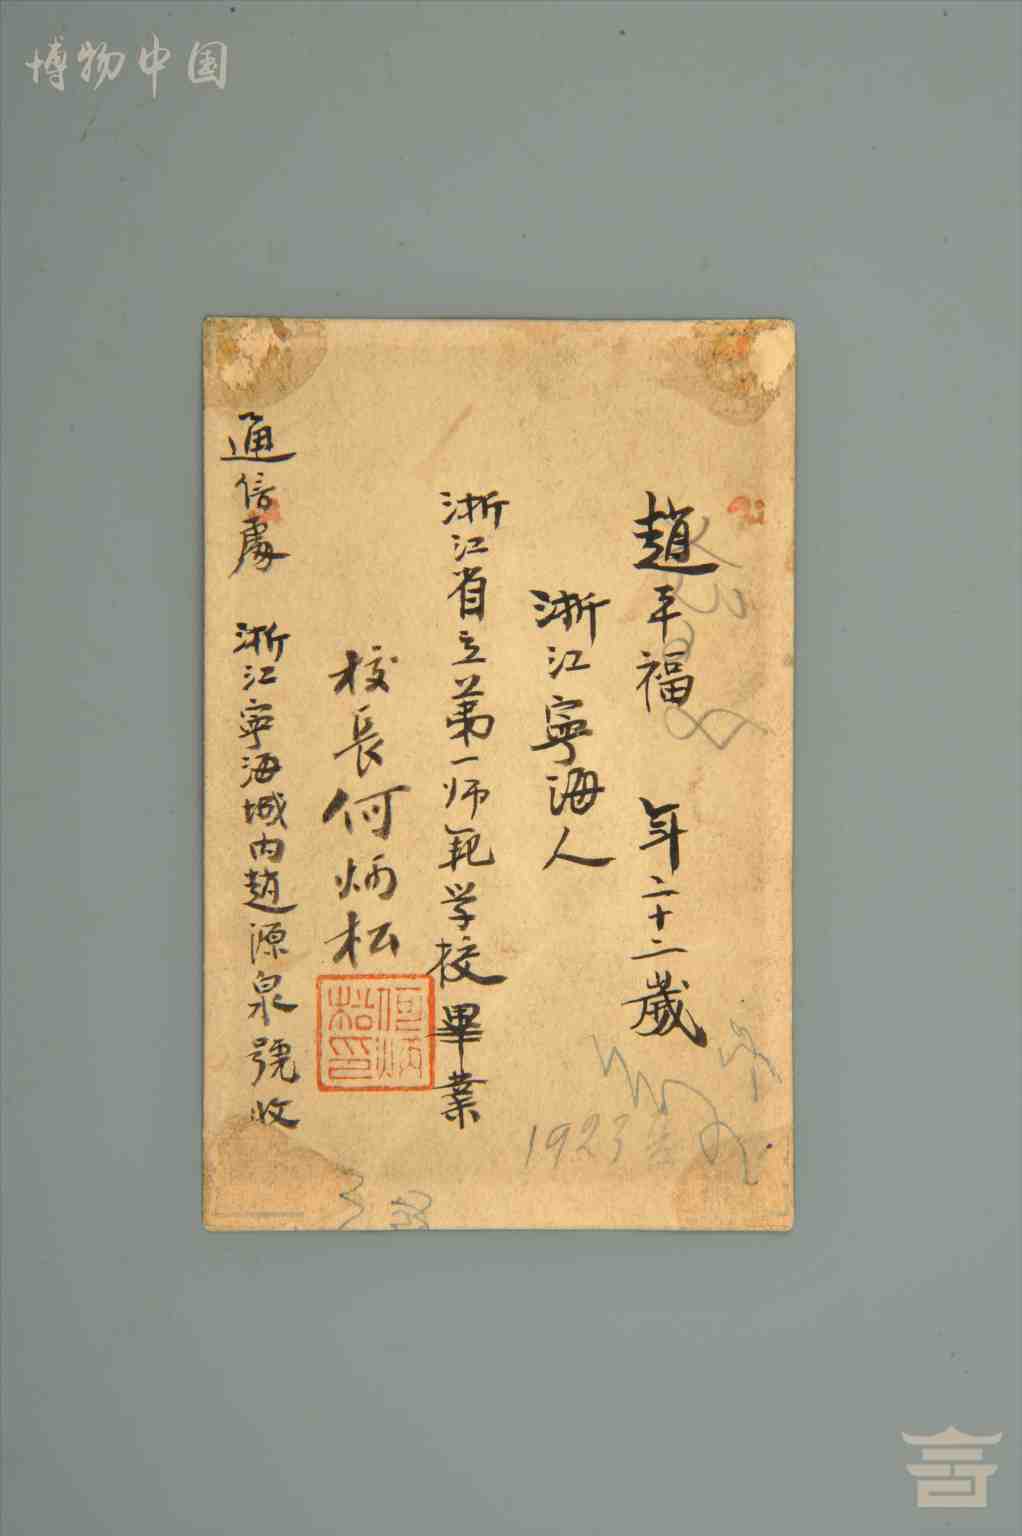 博物中国
趙平福 年二十二歲
浙江寧海人
浙江省立第一师範学校畢業
校長何炳松
何炳松印
通信處 浙江寧海城内趙源泉號收
1923